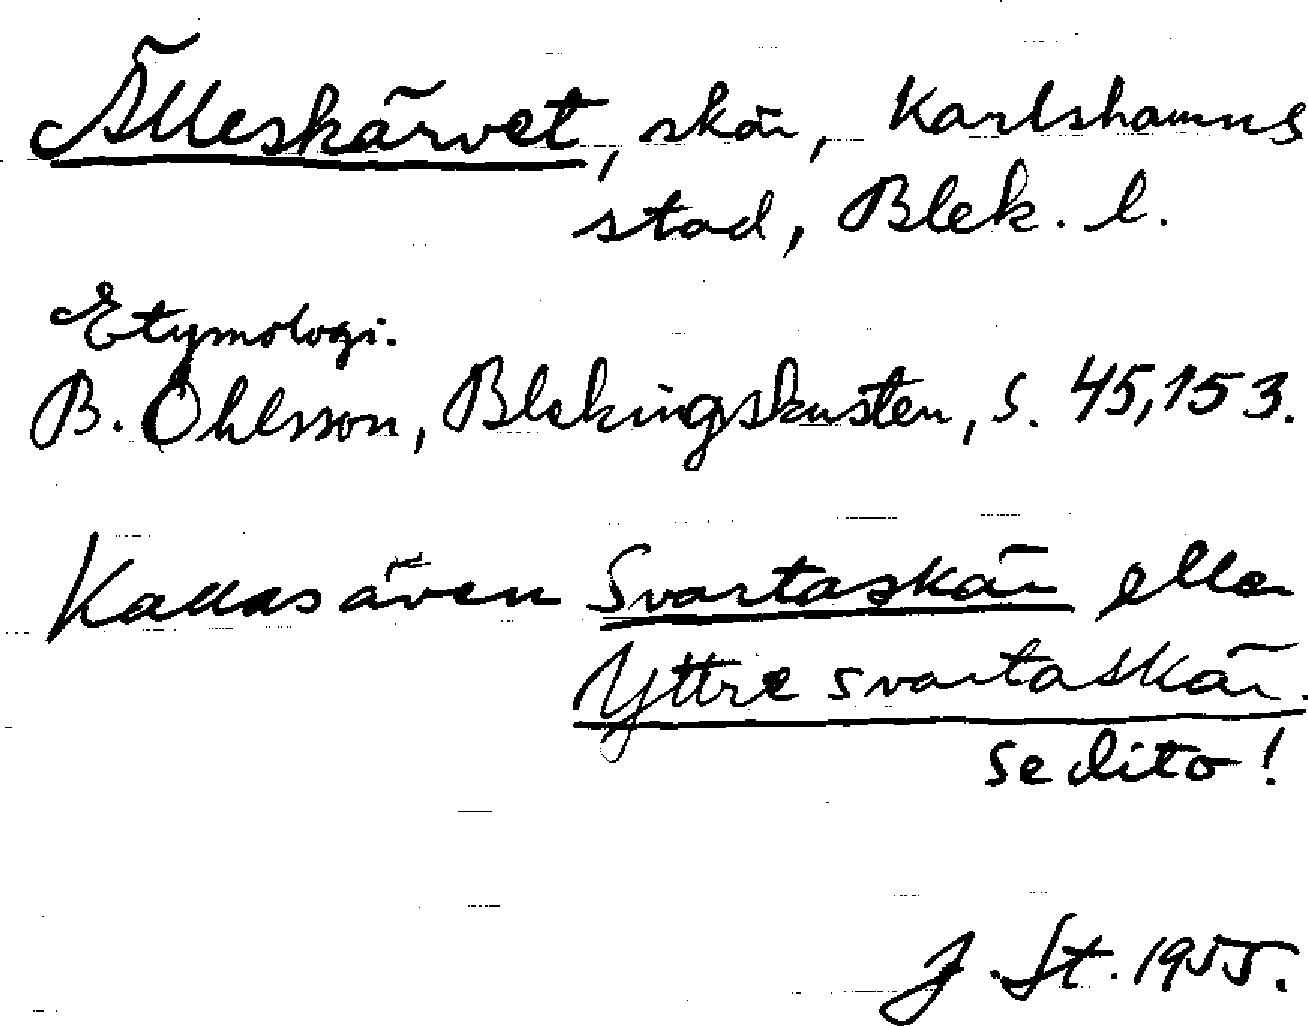 Älleskärvet, skär, Karlshamns
stad, Blek. l.
Etymologi.
B. Ohlsson, Blekingskusten, s. 45, 153.
Kallas även Svartaskär eller
Yttre svartaskär.
se dito!
J. St. 1955.